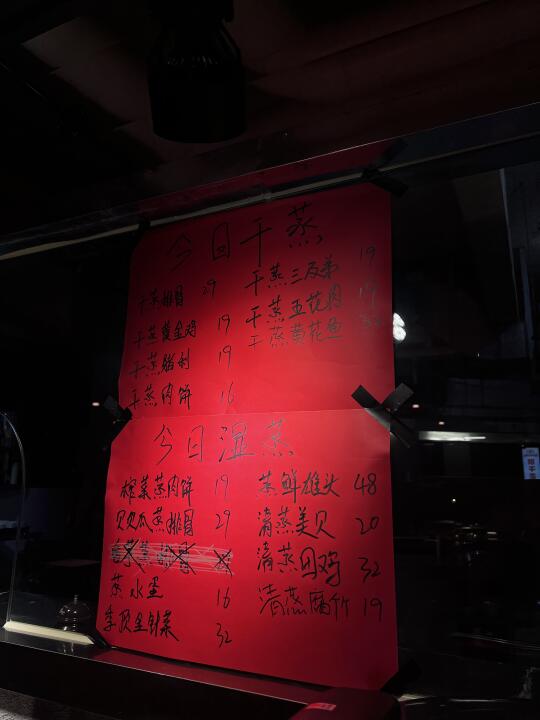 今日干蒸
干蒸排骨 29
干蒸黄金鸡 19
干蒸腊利 19
干蒸肉饼 16
干蒸三及弟 19
干蒸五花肉 19
干蒸黄花鱼 32
今日湿蒸
榨菜蒸肉饼 19
贝贝瓜蒸排骨 29
蒸水蛋 16
金针菜 32
蒸鲜雄头 48
清蒸美贝 20
清蒸回鸡 32
清蒸腐竹 19